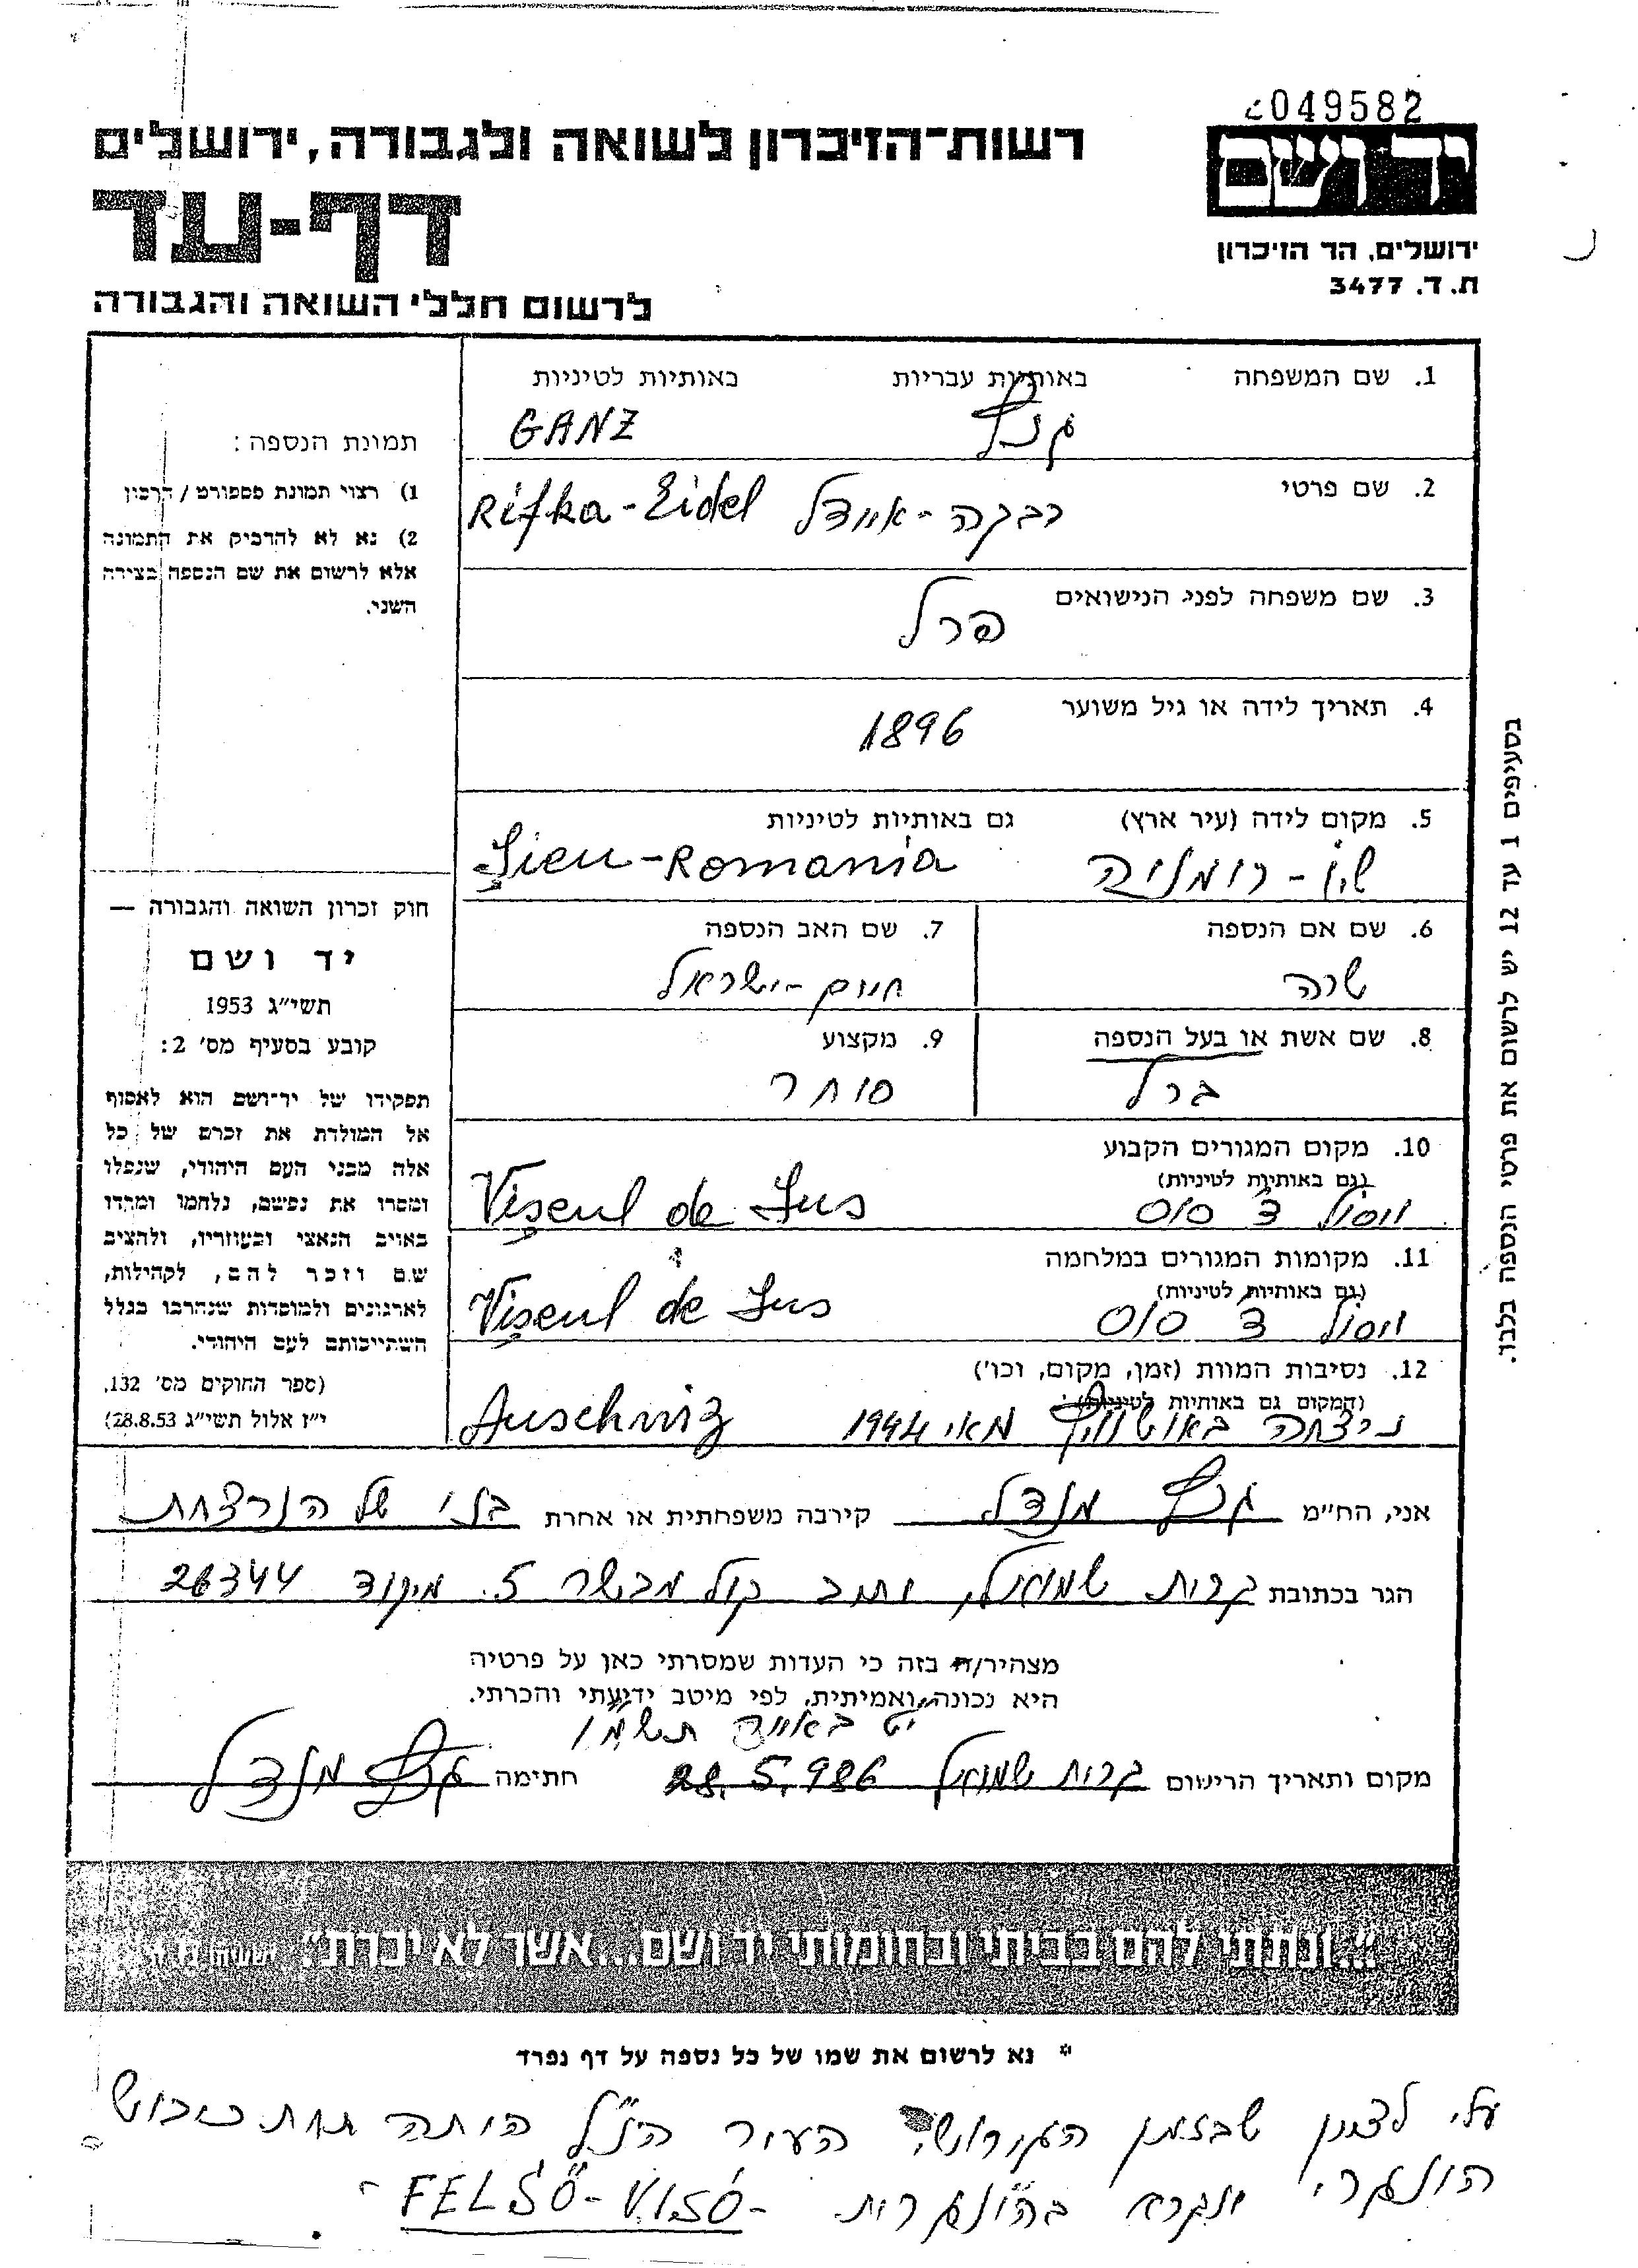 2049582
רשות־הזיכרון לשואה ולגבורה, ירושלים
יד ושם
דף-עד
ירושלים, הר הזיכרון
ת. ד. 3477
לרשום חללי השואה והגבורה
1. שם המשפחה באותיות עבריות באותיות לטיניות
גנץ GANZ
2. שם פרטי
רבקה-איידל Rifka-Eidel
3. שם משפחה לפני הנישואים
פרל
4. תאריך לידה או גיל משוער
1896
5. מקום לידה (עיר ארץ) גם באותיות לטיניות
שיו - רומניה Şieu-Romania
6. שם אם הנספה
שרה
7. שם האב הנספה
חיים-ישראל
8. שם אשת או בעל הנספה
ברל
9. מקצוע
סוחר
10. מקום המגורים הקבוע
(גם באותיות לטיניות)
ויסול דֶ סוס Vişeul de Sus
11. מקומות המגורים במלחמה
(גם באותיות לטיניות)
ויסול דֶ סוס Vişeul de Sus
12. נסיבות המוות (זמן, מקום, וכו')
(המקום גם באותיות לטיניות)
נירצחה באושוויץ מאי 1944 Auschwiz
תמונת הנספה:
1) רצוי תמונת פספורט/דרכון
2) נא לא להדביק את התמונה
אלא לרשום את שם הנספה בצידה
השני.
חוק זכרון השואה והגבורה —
יד ושם
תשי״ג 1953
קובע בסעיף מס׳ 2:
תפקידו של יד־ושם הוא לאסוף
אל המולדת את זכרם של כל
אלה מבני העם היהודי, שנפלו
ומסרו את נפשם, נלחמו ומרדו
באויב הנאצי ובעוזריו, ולהציב
שם וזכר להם, לקהילות,
לארגונים ולמוסדות שנחרבו בגלל
השתייכותם לעם היהודי.
(ספר החוקים מס׳ 132,
י״ז אלול תשי״ג 28.8.53)
בסעיפים 1 עד 12 יש לרשום את פרטי הנספה בלבד.
אני, הח״מ גנץ מנדל קירבה משפחתית או אחרת בנו של הנרצחת
הגר בכתובת קרית שמואל, רחוב קול מבשר 5. מיקוד 26344
מצהיר/ה בזה כי העדות שמסרתי כאן על פרטיה
היא נכונה ואמיתית, לפי מיטב ידיעתי והכרתי.
י״ט באייר תשמ״ו
מקום ותאריך הרישום קרית שמואל 28.5.986 חתימה גנץ מנדל
״...ונתתי להם בביתי ובחומותי יד ושם...אשר לא יכרת״. ישעיהו
* נא לרשום את שמו של כל נספה על דף נפרד
עלי לציין שבזמן הגירוש העיר הנ״ל היתה תחת כיבוש
הונגרי ונקרא בהונגרית -
FELSŐ-VISÓ -